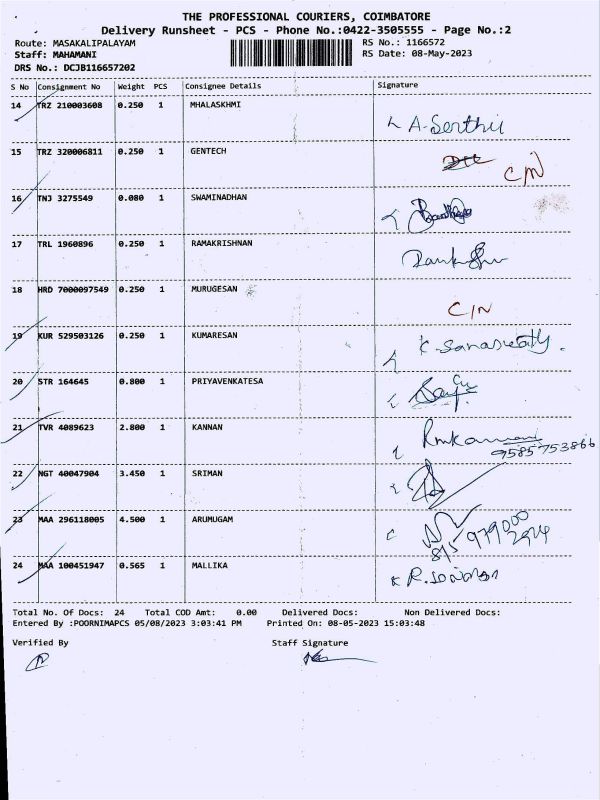 THE PROFESSIONAL COURIERS, COIMBATORE
Delivery Runsheet - PCS - Phone No.:0422-3505555 - Page No.:2
Route: MASAKALIPALAYAM RS No.: 1166572
Staff: MAHAMANI RS Date: 08-May-2023
DRS No.: DCJB116657202
S No Consignment No Weight PCS Consignee Details Signature
14 TRZ 210003608 0.250 1 MHALASKHMI
15 TRZ 320006811 0.250 1 GENTECH C/N
16 TNJ 3275549 0.080 1 SWAMINADHAN
17 TRL 1960896 0.250 1 RAMAKRISHNAN
18 HRD 7000097549 0.250 1 MURUGESAN C/N
19 KUR 529503126 0.250 1 KUMARESAN
20 STR 164645 0.800 1 PRIYAVENKATESA
21 TVR 4089623 2.800 1 KANNAN
9585753866
22 NGT 40047904 3.450 1 SRIMAN
23 MAA 296118005 4.500 1 ARUMUGAM
24 MAA 100451947 0.565 1 MALLIKA
Total No. Of Docs: 24 Total COD Amt: 0.00 Delivered Docs: Non Delivered Docs:
Entered By :POORNIMAPCS 05/08/2023 3:03:41 PM Printed On: 08-05-2023 15:03:48
Verified By Staff Signature